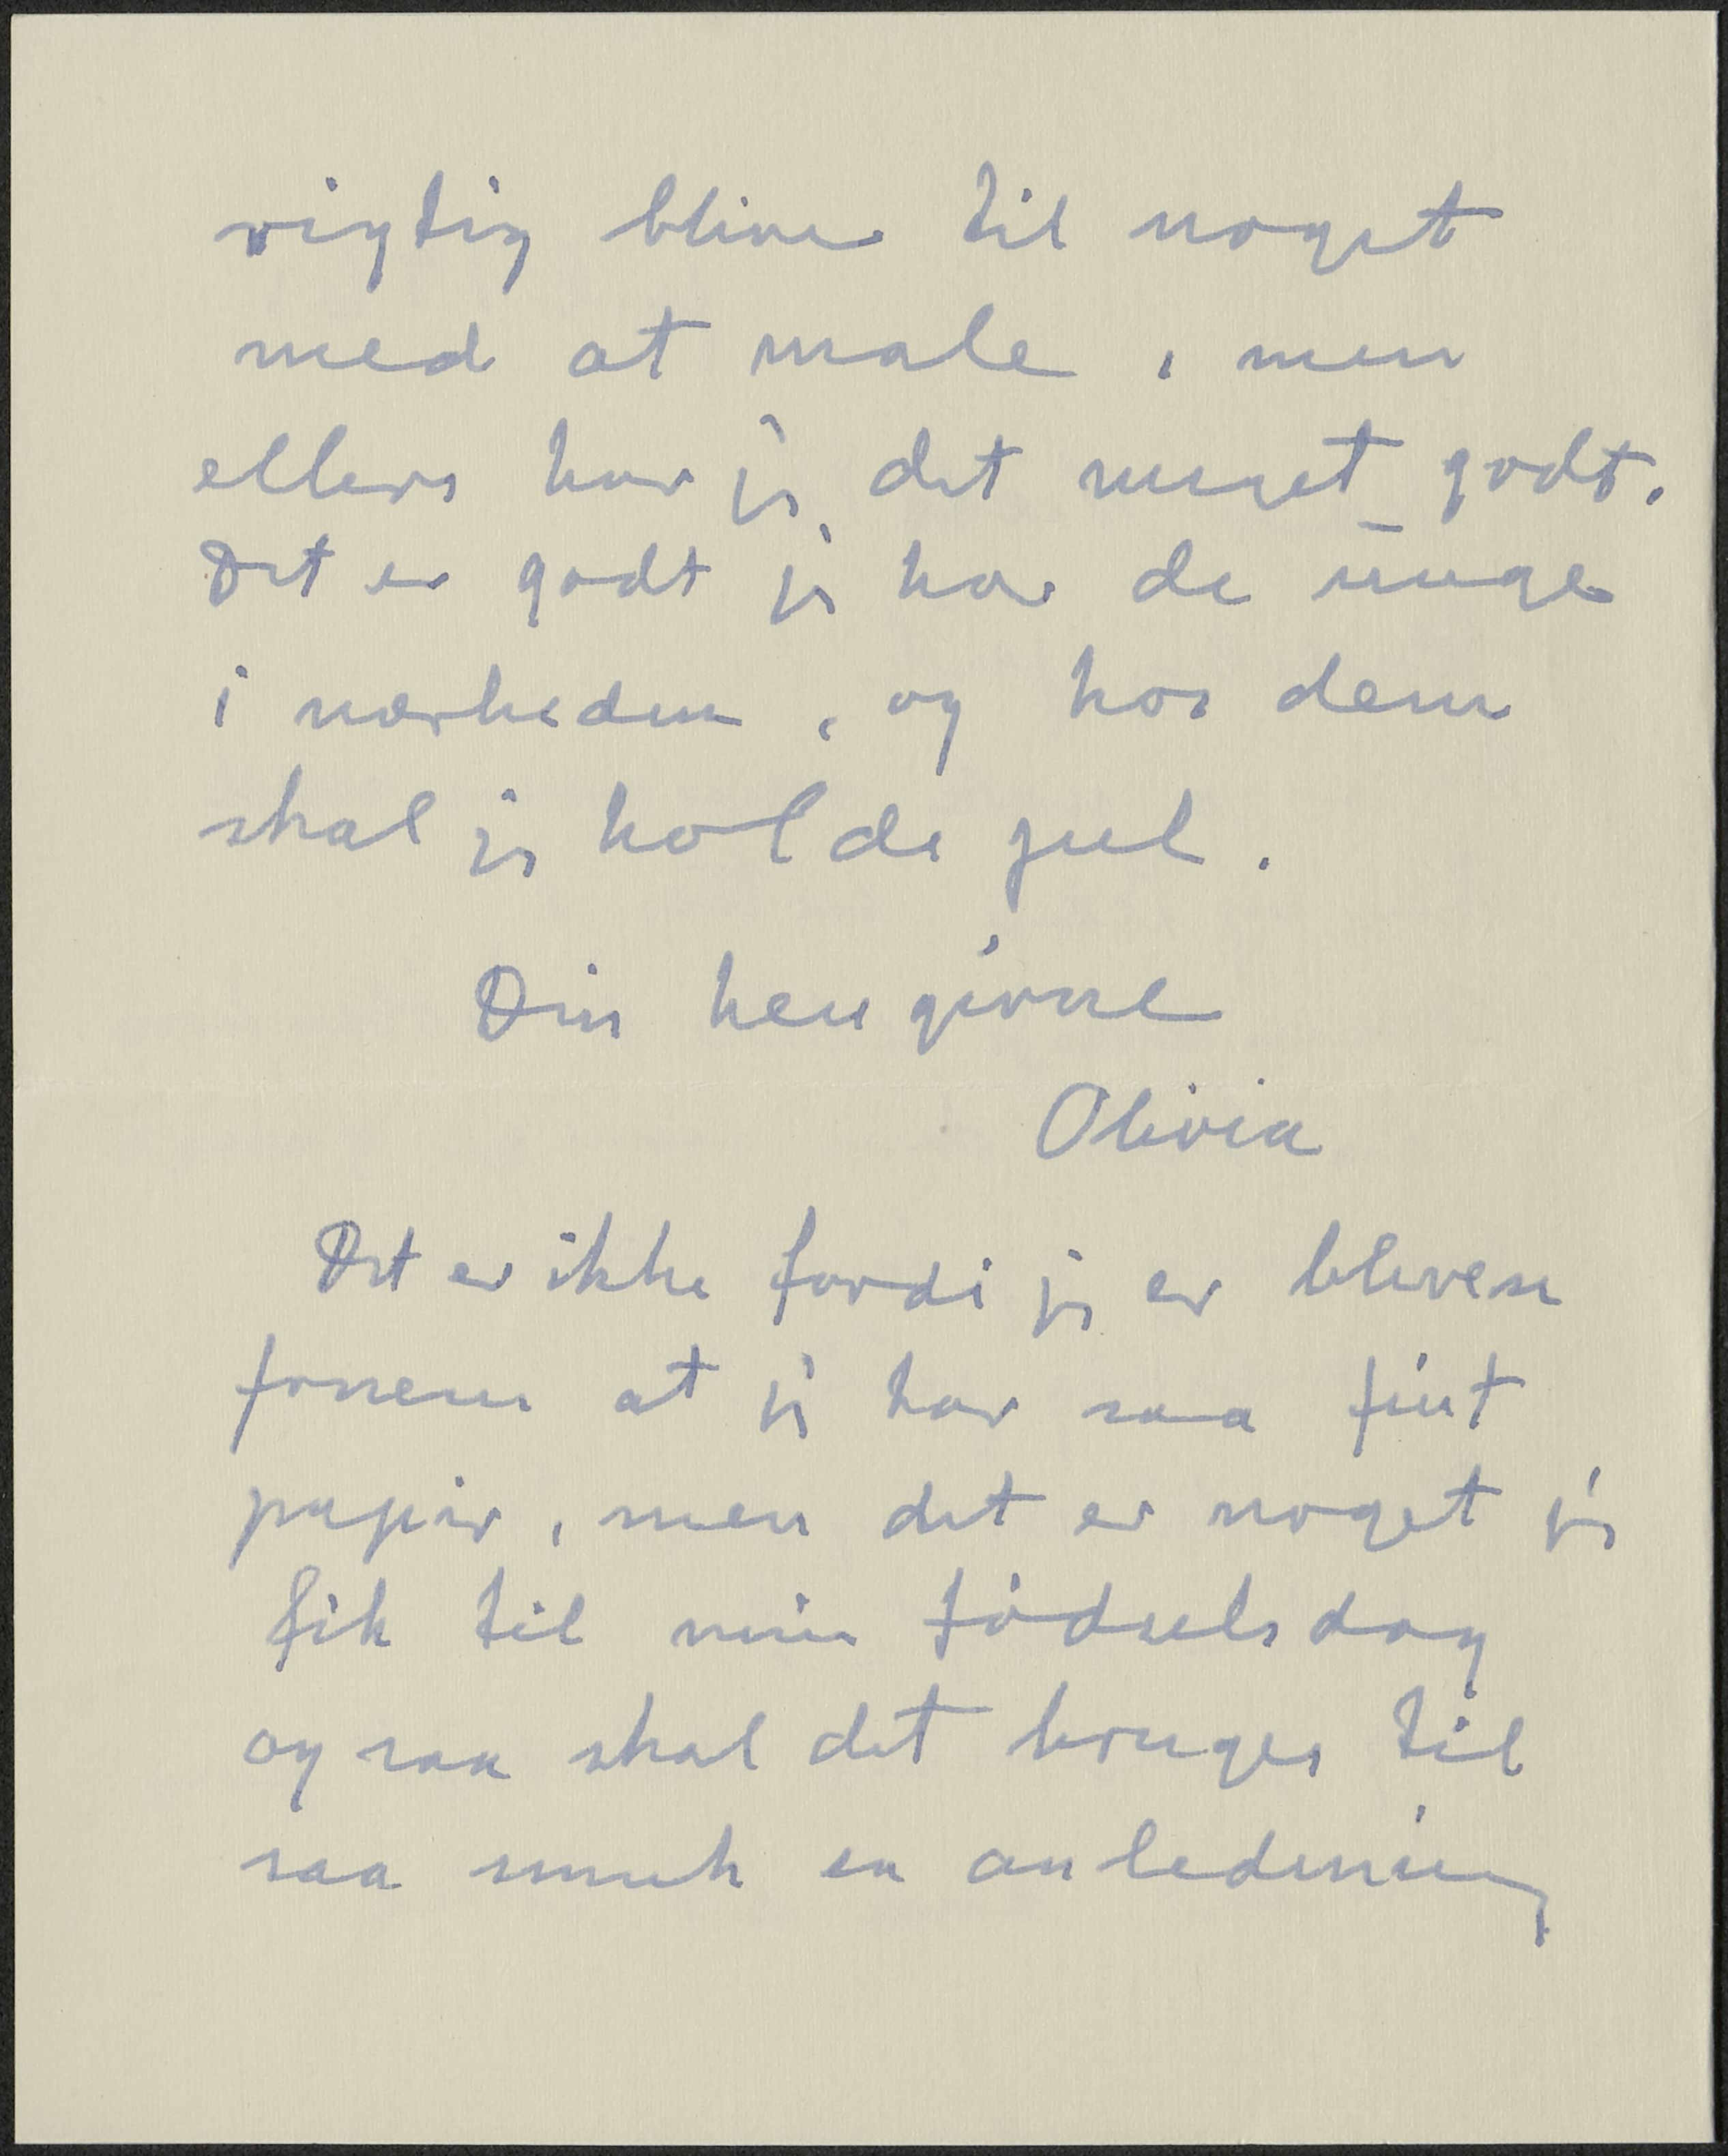 rigtig bliver til noget
med at male, men
ellers har jeg det meget godt.
Det er godt jeg har de unge
i nærheden, og hos dem
skal jeg holde jul.
Din hengivne
Olivia
Det er ikke fordi jeg er bleven
fornem at jeg har saa fint
papir, men det er noget jeg
fik til min fødselsdag
og saa skal det bruges til
saa smuk en anledning